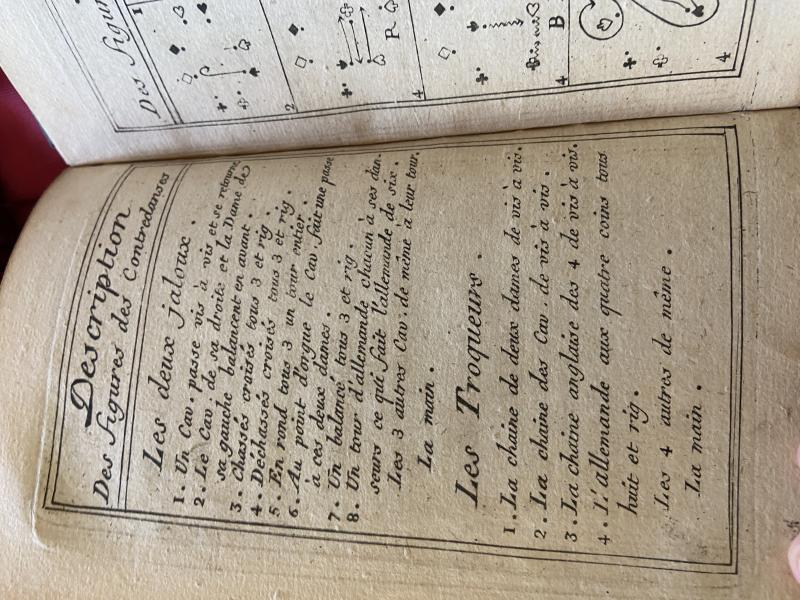 Description
Des Figures des Contredanses
Les deux jaloux.
1. Un Cav. passe vis à vis et se retourne
2. Le Cav de sa droite et la Dame de
sa gauche balancent en avant.
3. Chassés croisés tous 3 et rig
4. Déchassés croisés tous 3 et rig.
5. En rond tous 3 un tour entier.
6. Au point d'orgue le Cav. fait une passe
à ces deux dames.
7. Un balancé tous 3 et rig.
8. Un tour d'allemande chacun à ses dan
seurs ce qui fait l'allemande de six.
Les 3 autres Cav. de même à leur tour.
La main.
Les Troqueurs.
1. La chaine de deux dames de vis à vis.
2. La chaine des Cav. de vis à vis.
3. La chaine anglaise des 4 de vis à vis.
4. L'allemande aux quatre coins tous
huit et rig.
Les 4 autres de même.
La main.
Des Figur
1
2
R
4
B
4
4